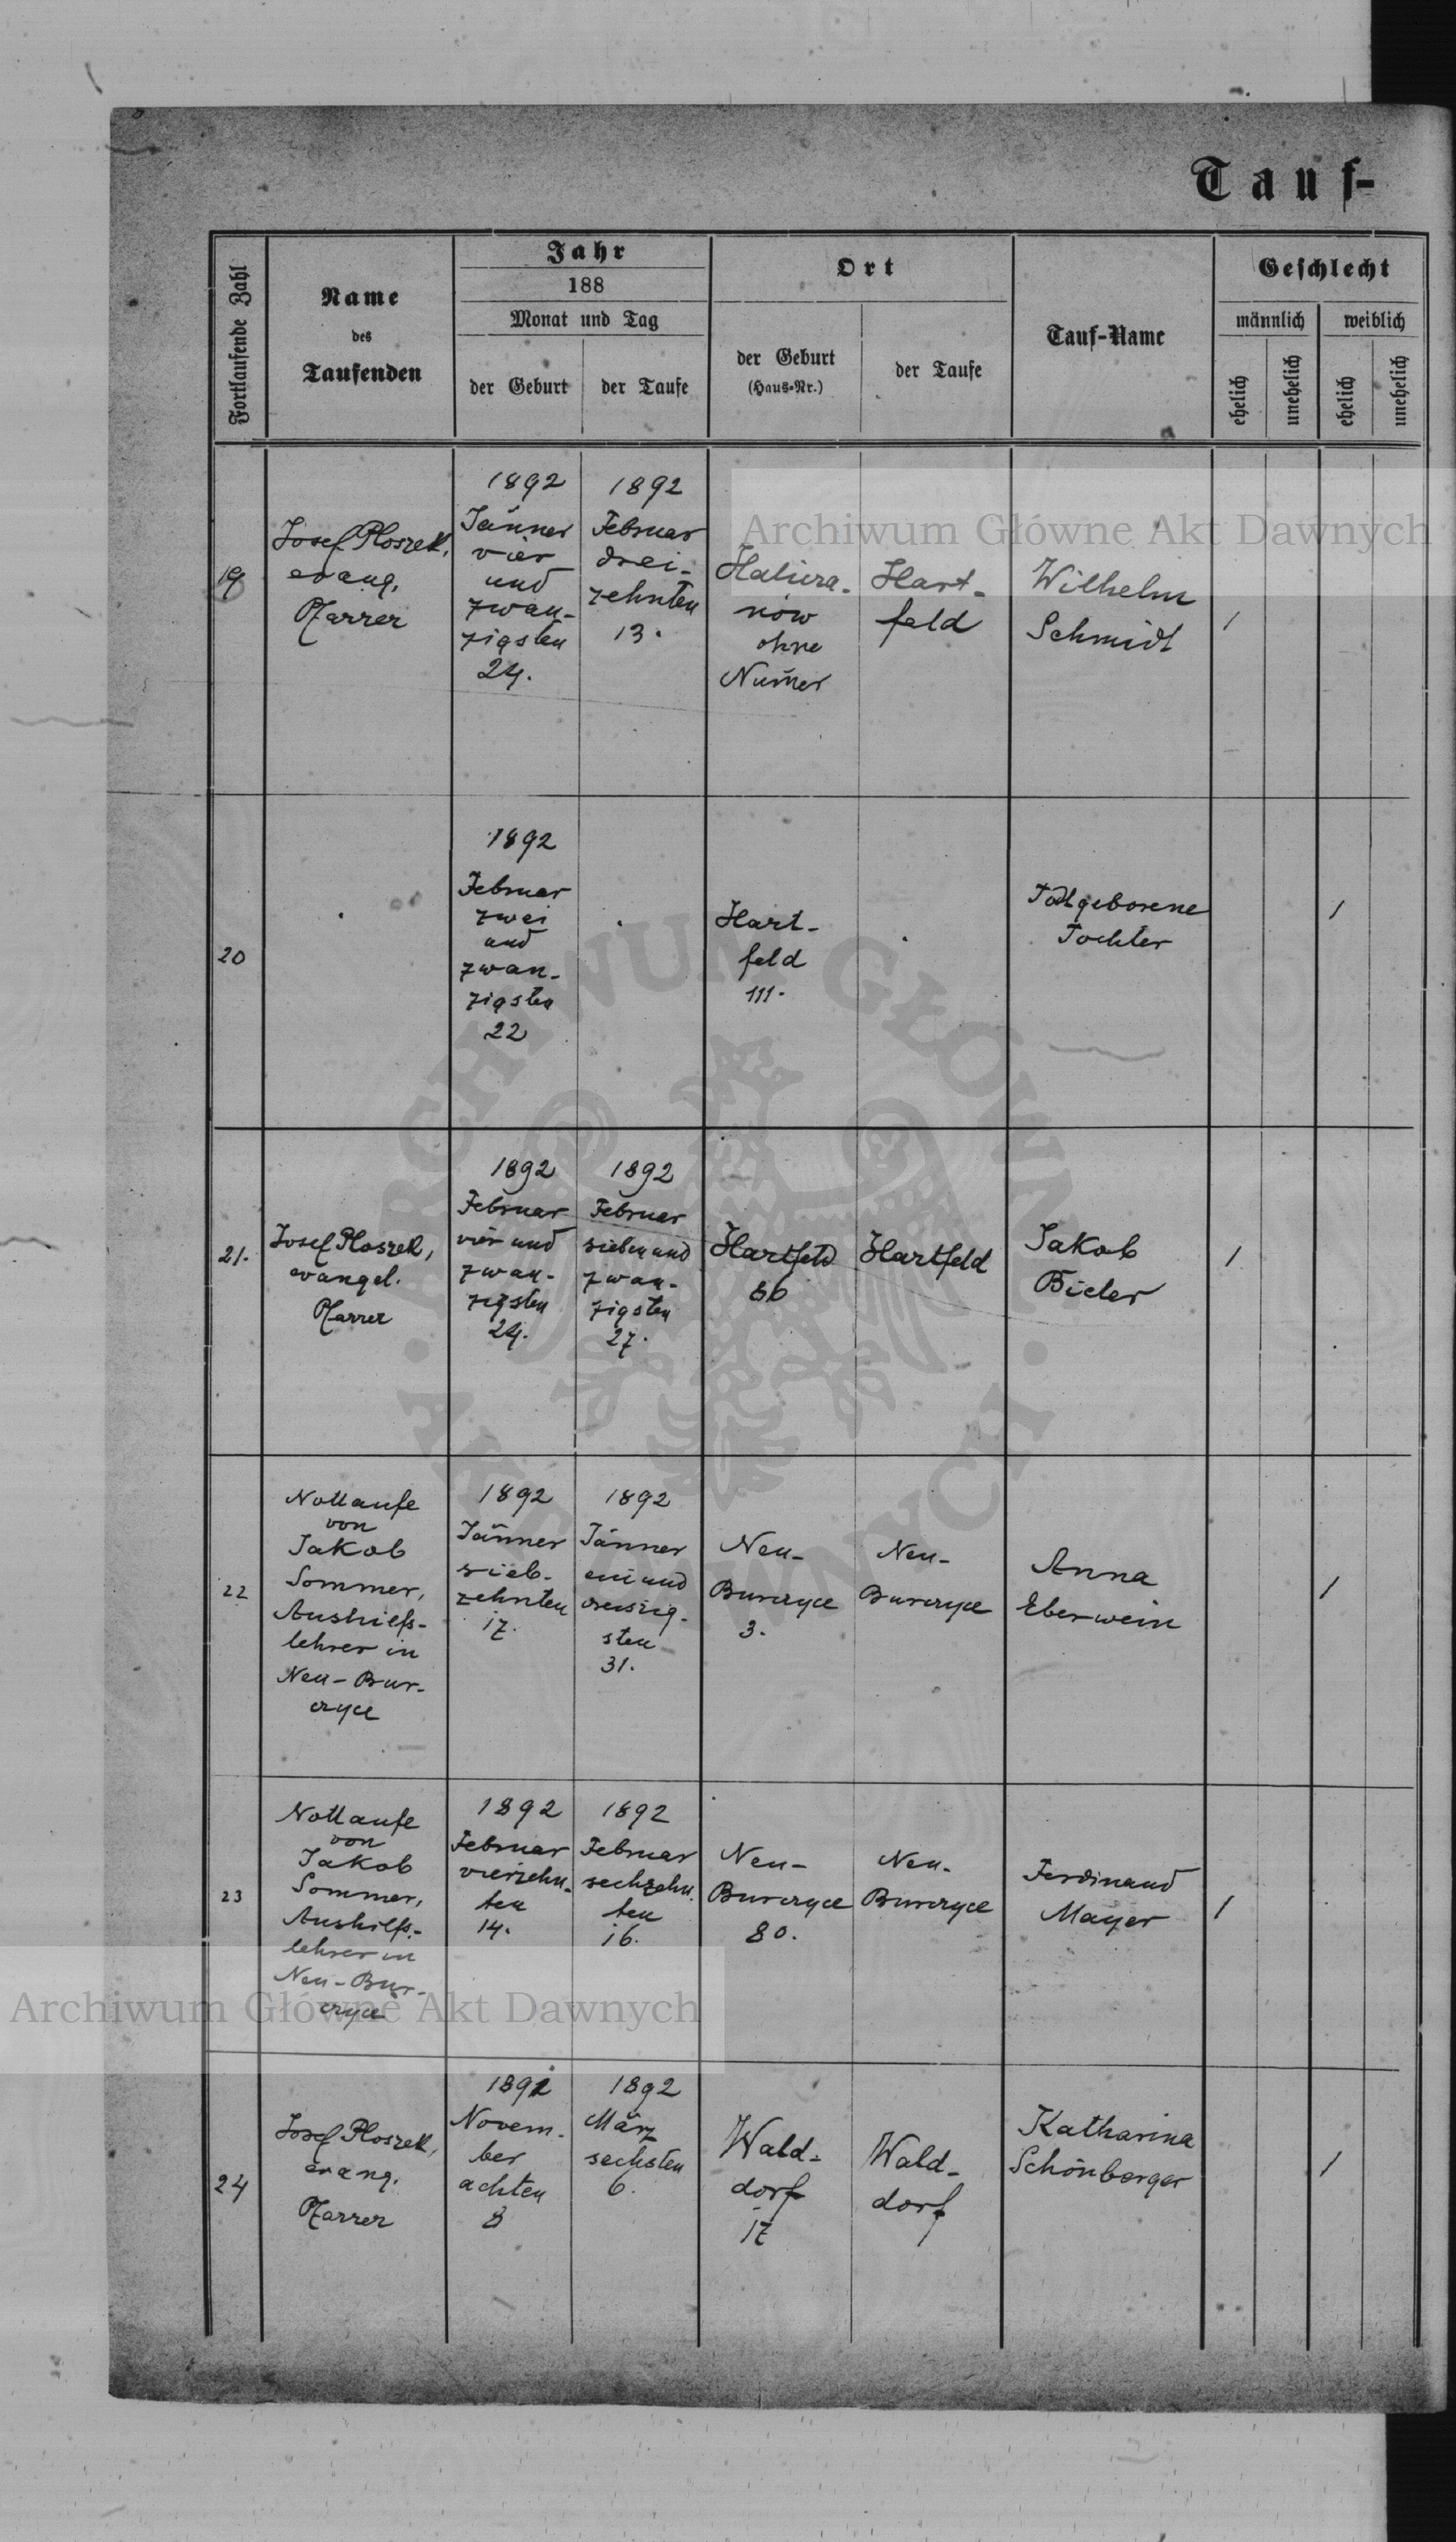 Tauf-
Fortlaufende Zahl
Name
des
Taufenden
Jahr
188
Monat und Tag
der Geburt
der Taufe
Ort
der Geburt
(Haus-Nr.)
der Taufe
Tauf-Name
Geschlecht
männlich
weiblich
ehelich
unehelich
ehelich
unehelich
19
Josef Ploszek,
evang.
Pfarrer
1892
Jänner
vier
und
zwan-
zigsten
24.
1892
Februar
drei-
zehnten
13.
now
ohne
Num̄er
Hart-
feld
Wilhelm
Schmidt
1
20
1892
Februar
zwei
und
zwan-
zigsten
22
Hart-
feld
111.
Todtgeborene
Tochter
1
21.
Josef Ploszek,
evangel.
Pfarrer
1892
Februar
vier und
zwan-
zigsten
24.
1892
Februar
sieben und
zwan-
zigsten
27.
Hartfeld
Hartfeld
Jakob
Bieler
1
22
Nottaufe
von
Jakob
Sommer,
Aushilfs-
lehrer in
Neu-Bur-
czyce
1892
Jänner
sieb-
zehnten
17.
1892
Jänner
ein und
dreiszig-
sten
31.
Neu-
Burczyce
3.
Neu-
Burczyce
Anna
Eberwein
1
23
Nottaufe
von
Jakob
Sommer,
Aushilfs-
lehrer in
Neu-Bur-
czyce
1892
Februar
vierzehn-
ten
14.
1892
Februar
sechzehn-
ten
16.
Neu-
Burczyce
80.
Neu-
Burczyce
Ferdinand
Mayer
1
24
Josef Ploszek,
evang.
Pfarrer
1891
Novem-
ber
achten
8
1892
März
sechsten
6.
Wald-
dorf
17
Wald-
dorf
Katharina
Schönberger
1
Archiwum Główne Akt Dawnych
Archiwum Główne Akt Dawnych
ARCHIWUM GŁÓWNE AKT DAWNYCH